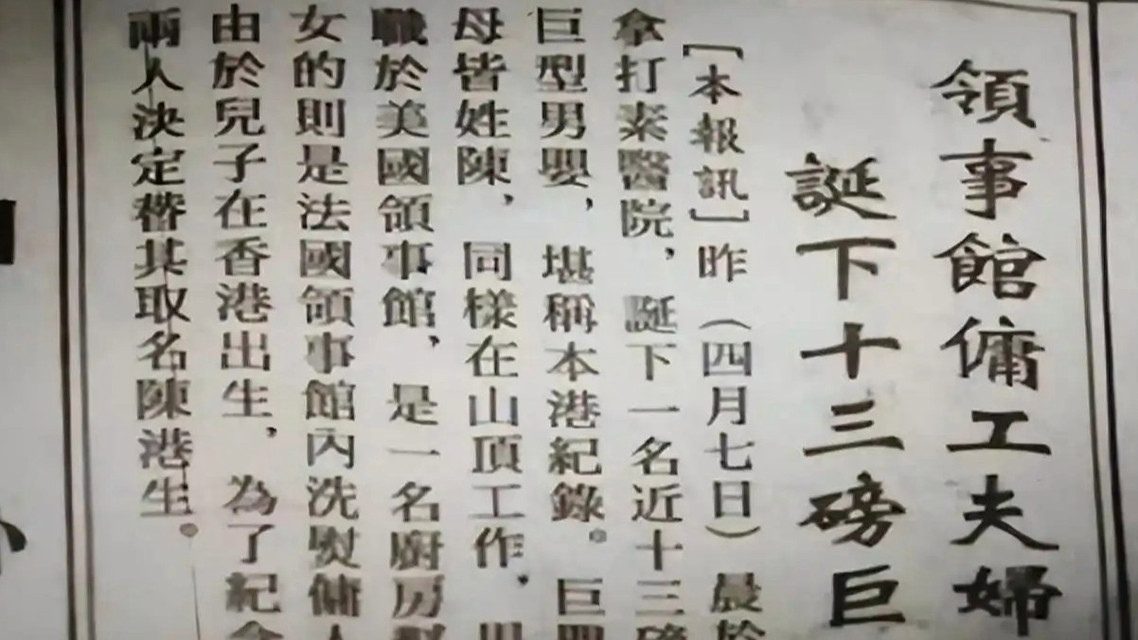 領事館傭工夫婦
誕下十三磅巨
［本報訊］昨（四月七日）晨於
拿打素醫院，誕下一名近十三磅
巨型男嬰，堪稱本港紀錄。巨
母皆姓陳，同樣在山頂工作，
職於美國領事館，是一名廚房
女的則是法國領事館內洗熨傭人
由於兒子在香港出生，為了紀念
兩人決定替其取名陳港生。